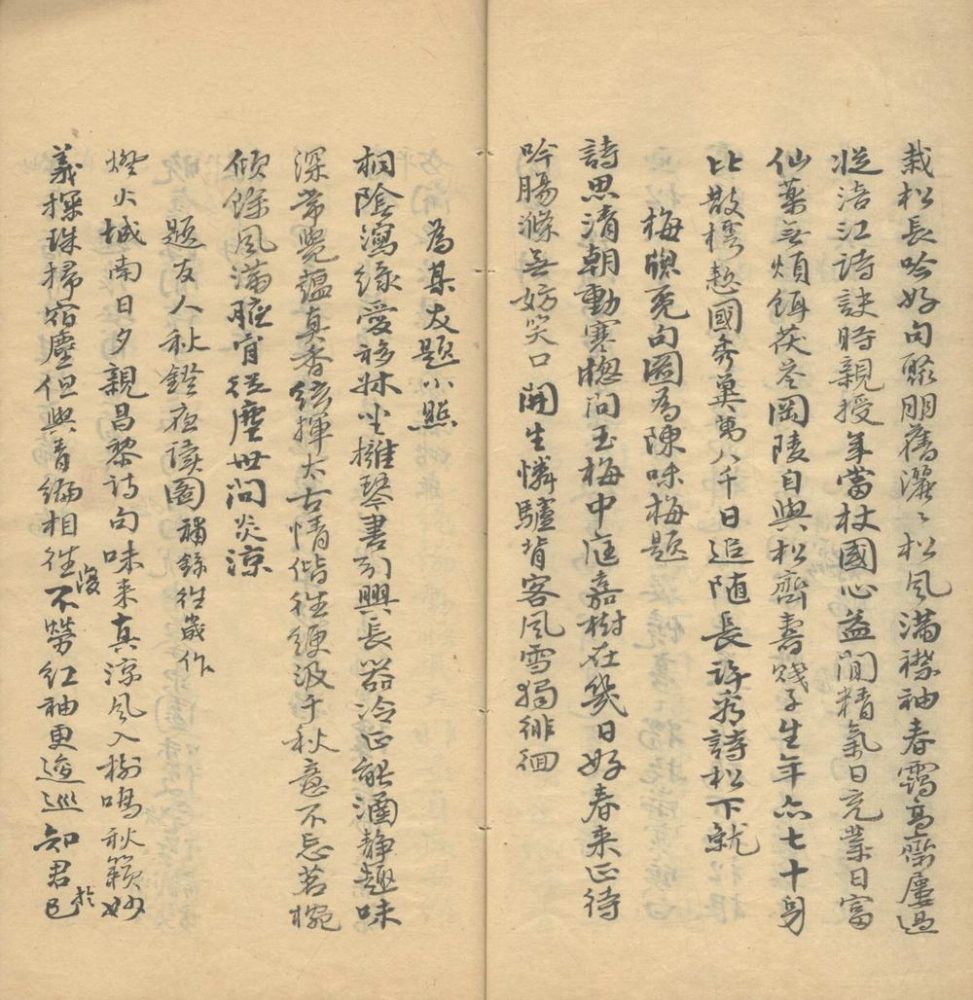 栽松長吟好句聚朋舊濕〻松风滿襟袖春靄髙齋屢過
從涪江詩訣時親授年當杖國心益閒精氣日充業日富
仙藥无煩餌茯苓岡陵自與松齊壽賤子生年亦七十身
比散樗愁國秀冀萬八千日追随長許看詩松下就
梅牕覓句圖為陳味梅題
詩思清朝動寒牕問玉梅中庭嘉樹在幾日好春来正待
吟腸滌无妨笑口開生憐驢背客風雪獨徘徊
為某友題小照
桐陰瀉綠愛移牀坐擁琴書引興長器冷正能涵静趣味
深常覺蘊真香絃揮太古情偕往綆汲千秋意不忘茗椀
傾餘风滿腋肯從塵世問炎涼
題友人秋鐙夜讀圖補錄往歲作
燈火城南日夕親昌黎詩句味来真涼风入樹鳴秋籟妙
義探珠掃宿塵但與青編相往復不勞紅袖更逡巡知君已於